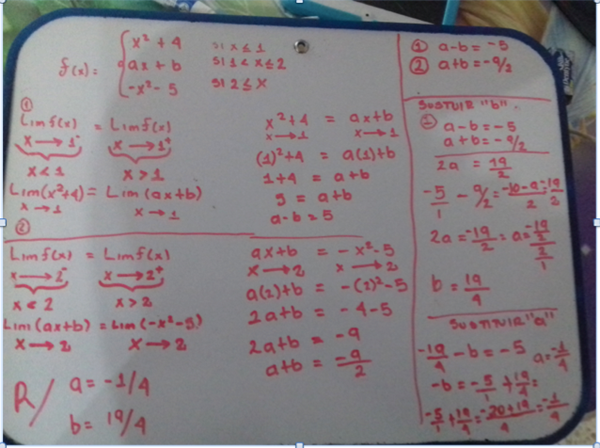 f(x)= { x² + 4 si x ≤ 1
ax + b si 1 < x ≤ 2
-x² - 5 si 2 ≤ x
①
Lim f(x) = Lim f(x)
x → 1⁻ x → 1⁺
x < 1 x > 1
Lim (x²+4) = Lim (ax+b)
x → 1 x → 1
x² + 4 = ax + b
x → 1 x → 1
(1)² + 4 = a(1) + b
1 + 4 = a + b
5 = a + b
a - b = 5
②
Lim f(x) = Lim f(x)
x → 2⁻ x → 2⁺
x < 2 x > 2
Lim (ax+b) = Lim (-x²-5)
x → 2 x → 2
ax + b = -x² - 5
x → 2 x → 2
a(2) + b = -(2)² - 5
2a + b = -4 - 5
2a + b = -9
a + b = -9/2
R/ a = -1/4
b = 19/4
① a - b = -5
② a + b = -9/2
sustuir "b".
① a - b = -5
a + b = -9/2
2a = 19/2
-5/1 - 9/2 = -10-9/2 = 19/2
2a = -19/2 = a = -19/2 / 2/1
b = 19/4
sustituir "a"
-19/4 - b = -5 a = -1/4
-b = -5/1 + 19/4 =
-5/1 + 19/4 = -20+19/4 = -1/4